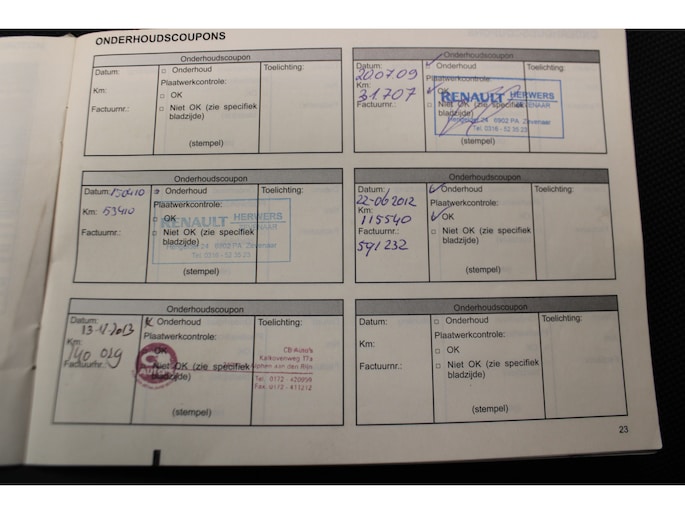 ONDERHOUDSCOUPONS
Onderhoudscoupon
Datum:
□ Onderhoud
Toelichting:
Plaatwerkcontrole:
Km:
□ OK
Factuurnr.:
□ Niet OK (zie specifiek
bladzijde)
(stempel)
Onderhoudscoupon
Datum:
✓ Onderhoud
Toelichting:
20.07.09
Plaatwerkcontrole:
Km:
✓ OK
31.707
Factuurnr.:
□ Niet OK (zie specifiek
bladzijde)
RENAULT HERWERS
ZEVENAAR
Hengelder 24 6902 PA Zevenaar
Tel. 0316 - 52 35 23
(stempel)
Onderhoudscoupon
Datum: 150410
Onderhoud
Toelichting:
Plaatwerkcontrole:
Km: 53410
□ OK
Factuurnr.:
□ Niet OK (zie specifiek
bladzijde)
RENAULT HERWERS
ZEVENAAR
Hengelder 24 6902 PA Zevenaar
Tel. 0316 - 52 35 23
(stempel)
Onderhoudscoupon
Datum:
✓ Onderhoud
Toelichting:
22-06 2012
Plaatwerkcontrole:
Km:
✓ OK
115540
Factuurnr.:
□ Niet OK (zie specifiek
bladzijde)
591232
(stempel)
Onderhoudscoupon
Datum:
Onderhoud
Toelichting:
2013
Plaatwerkcontrole:
Km:
OK
140 029
Factuurnr.:
Niet OK (zie specifiek
bladzijde)
CB
AUTO'S
CB Auto's
Kalkovenweg 17a
Alphen aan den Rijn
Tel. 0172 - 420959
Fax. 0172 - 411212
(stempel)
Onderhoudscoupon
Datum:
□ Onderhoud
Toelichting:
Plaatwerkcontrole:
Km:
□ OK
Factuurnr.:
□ Niet OK (zie specifiek
bladzijde)
(stempel)
23